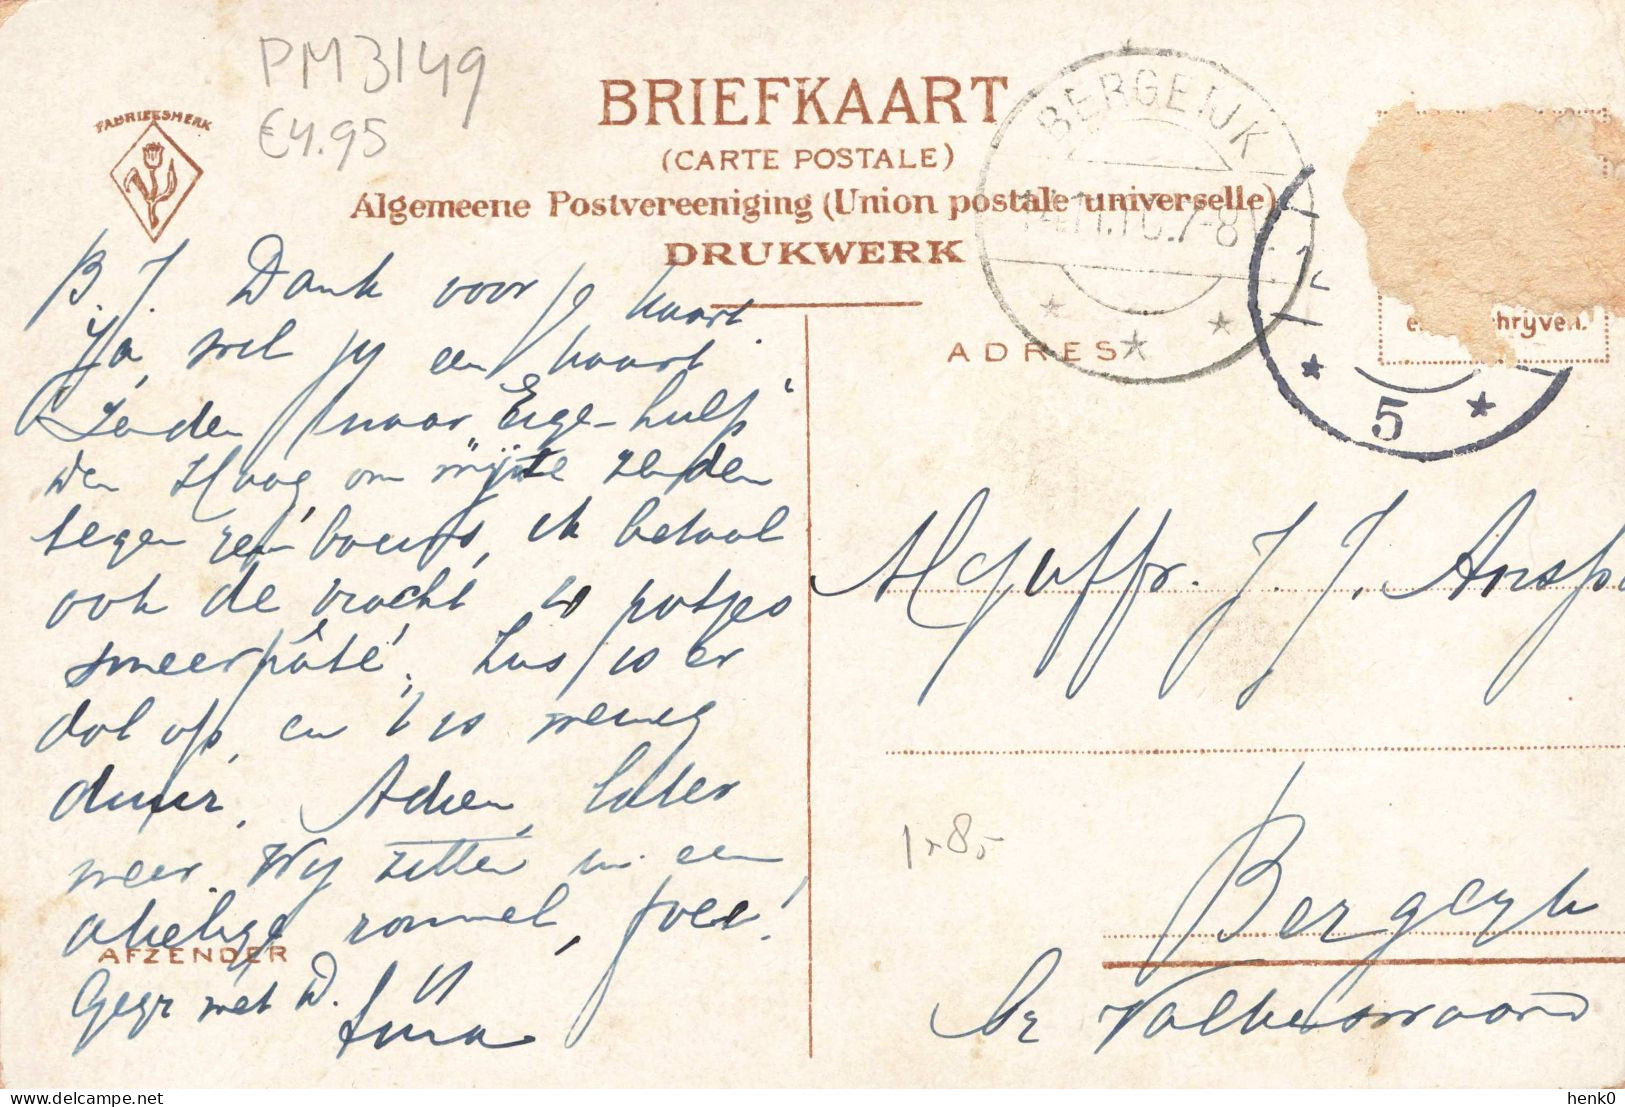 PM3149
€4.95
FABRIEKSMERK
BRIEFKAART
(CARTE POSTALE)
Algemeene Postvereeniging (Union postale universelle)
DRUKWERK
BERGEIJK
7-8V
ADRES
5
B. J. Dank voor je kaart.
Ja, wil jy een kaart
zenden naar "Eige-hulp"
den Haag, om myn te zenden
tegen rembours, ik betaal
ook de vracht, 10 potjes
smeerpâté. Zus is er
dol op, en 't is weinig
duur. Adieu, later
meer. Wy zitten in een
akelige rommel, foei!
AFZENDER
Gegr met D.
Mejuffr. J. J. Ansp
1x8,-
Bergeyk
Valkenswaard
henk0